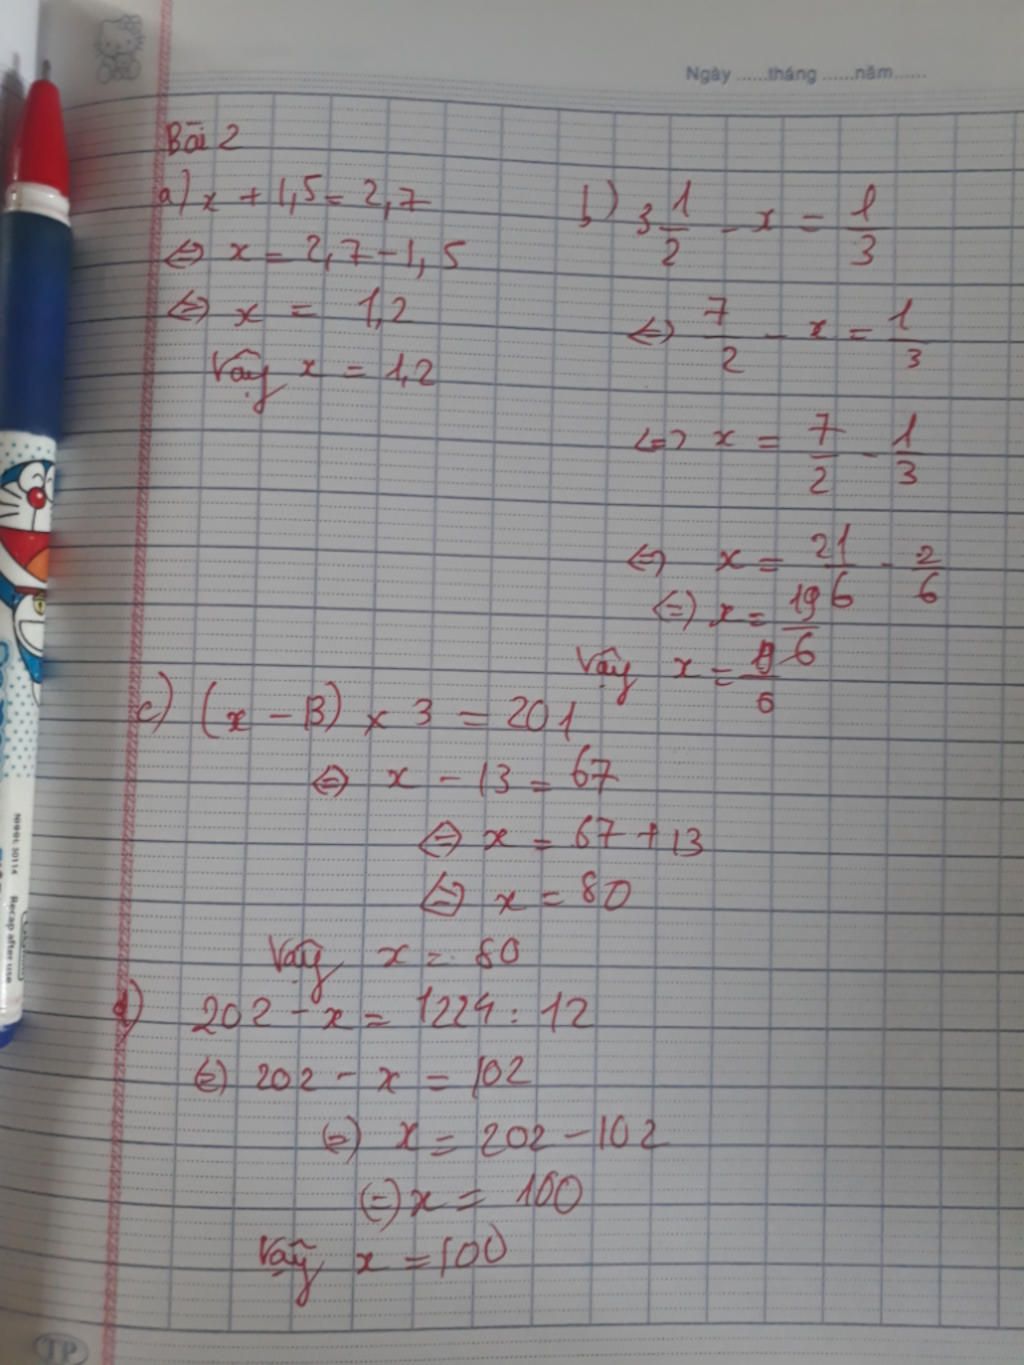 Ngày ......tháng ......năm......
Bài 2
a) x + 1,5 = 2,7
<=> x = 2,7 - 1,5
<=> x = 1,2
Vậy x = 1,2
b) 3 1/2 - x = 1/3
<=> 7/2 - x = 1/3
<=> x = 7/2 - 1/3
<=> x = 21/6 - 2/6
<=> x = 19/6
Vậy x = 19/6
c) (x - 13) x 3 = 201
<=> x - 13 = 67
<=> x = 67 + 13
<=> x = 80
Vậy x = 80
d) 202 - x = 1224 : 12
<=> 202 - x = 102
<=> x = 202 - 102
<=> x = 100
Vậy x = 100
Recap after use
TP